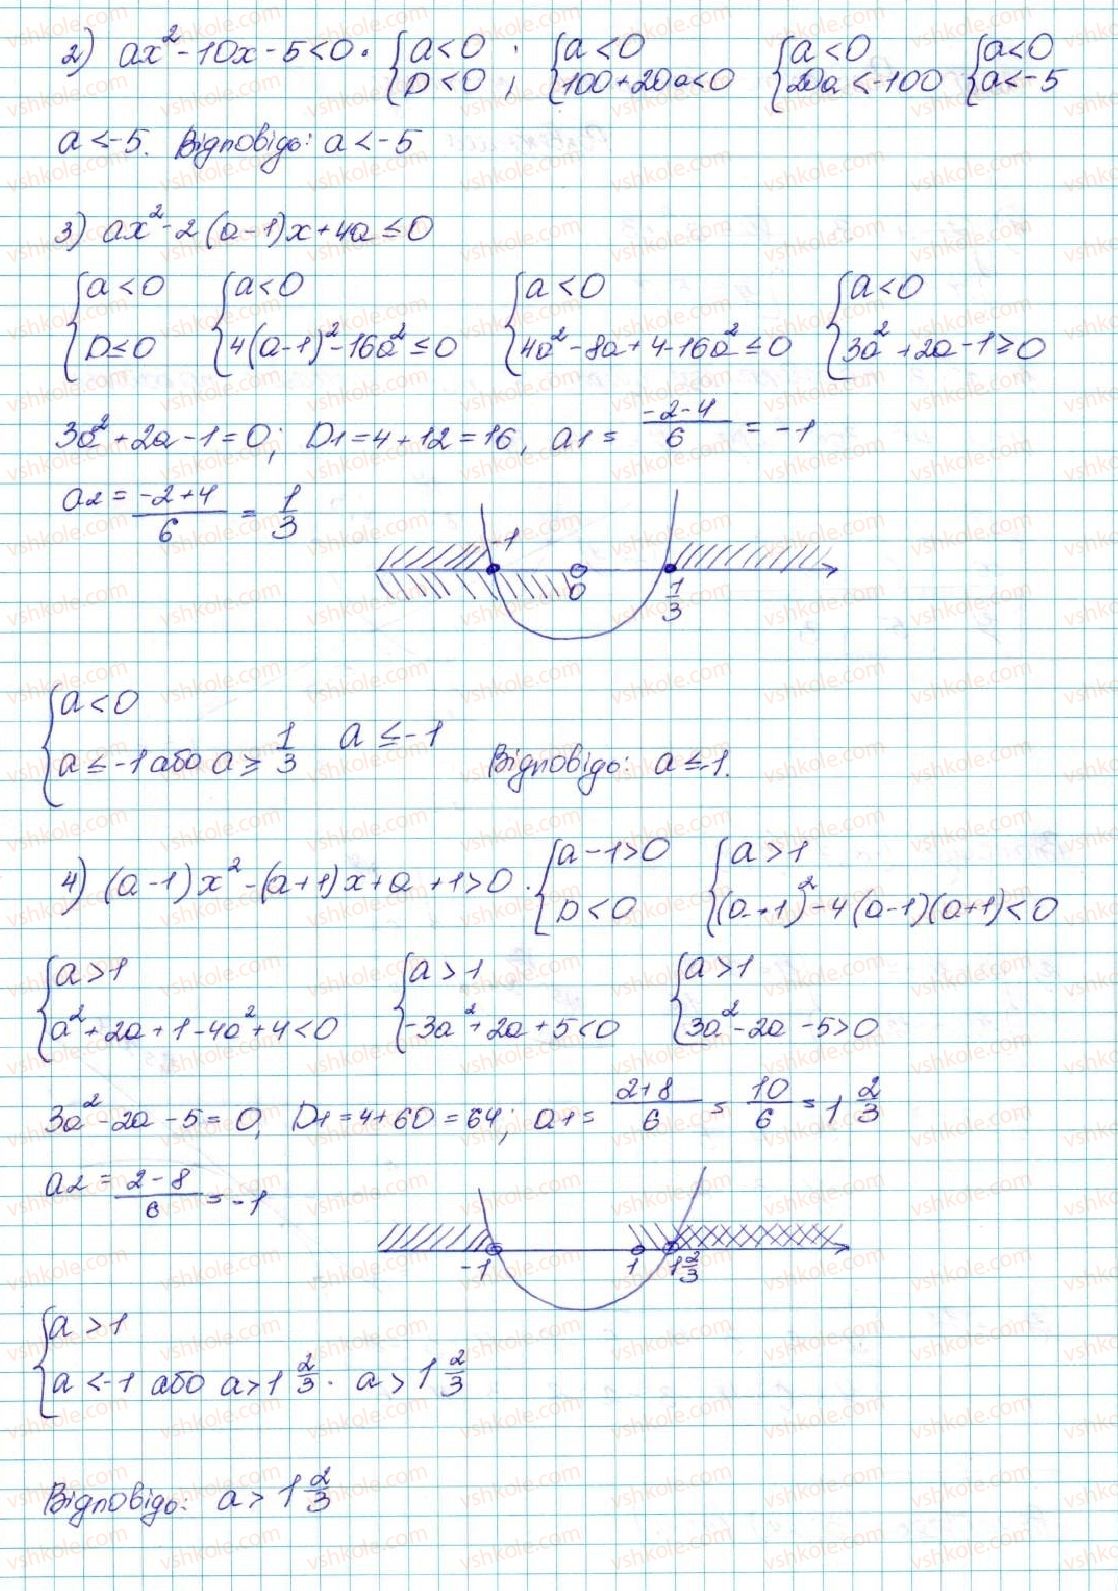 2) ax² - 10x - 5 < 0 · { a < 0 D < 0 ; { a < 0 100 + 20a < 0 { a < 0 20a < -100 { a < 0 a < -5
a < -5. Відповідь: a < -5
3) ax² - 2(a-1)x + 4a ≤ 0
{ a < 0 D ≤ 0 { a < 0 4(a-1)² - 16a² ≤ 0 { a < 0 4a² - 8a + 4 - 16a² ≤ 0 { a < 0 3a² + 2a - 1 ≥ 0
3a² + 2a - 1 = 0; D1 = 4 + 12 = 16, a1 = (-2-4)/6 = -1
a2 = (-2+4)/6 = 1/3
-1 0 1/3
{ a < 0 a ≤ -1 або a ≥ 1/3 a ≤ -1
Відповідь: a ≤ 1.
4) (a-1)x² - (a+1)x + a + 1 > 0 · { a - 1 > 0 D < 0 { a > 1 (a+1)² - 4(a-1)(a+1) < 0
{ a > 1 a² + 2a + 1 - 4a² + 4 < 0 { a > 1 -3a² + 2a + 5 < 0 { a > 1 3a² - 2a - 5 > 0
3a² - 2a - 5 = 0, D1 = 4 + 60 = 64; a1 = (2+8)/6 = 10/6 = 1 2/3
a2 = (2-8)/6 = -1
-1 1 1 2/3
{ a > 1 a < -1 або a > 1 2/3 · a > 1 2/3
Відповідь: a > 1 2/3